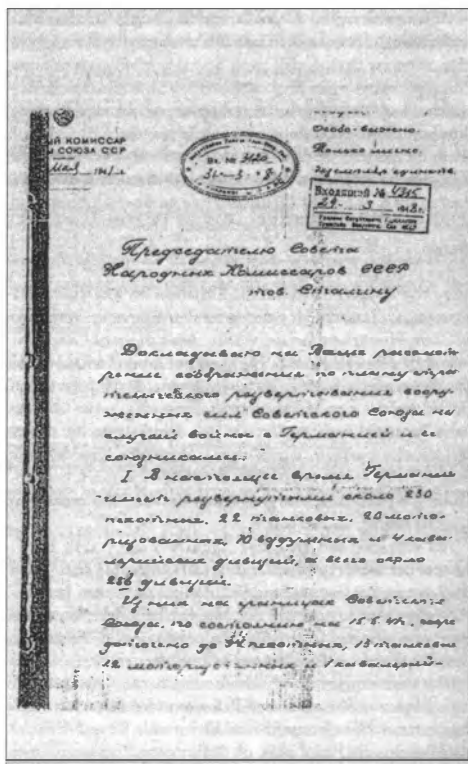 ЫЙ КОМИССАР
Ы СОЮЗА ССР
мая 1941 г.
Особо важно.
Только лично.
экземпляр единств.
Вх. №
31 - 3
Входящий №
29. 3 48г.
Председателю Совета
Народных Комиссаров СССР
тов. Сталину
Докладываю на Ваше рассмот
рение соображения по плану стра
тегического развертывания воору
женных сил Советского Союза на
случай войны с Германией и ее
союзниками.
I В настоящее время Германия
имеет развернутыми около 230
пехотных, 22 танковых, 20 мото-
ризованных, 10 воздушных и 4 кава-
лерийских дивизий, а всего около
дивизий.
Из них на границах Советского
Союза, по состоянию на 15.5.41г. сосре
доточено до пехотных, 13 танковых
12 моторизованных и 1 кавалерий-